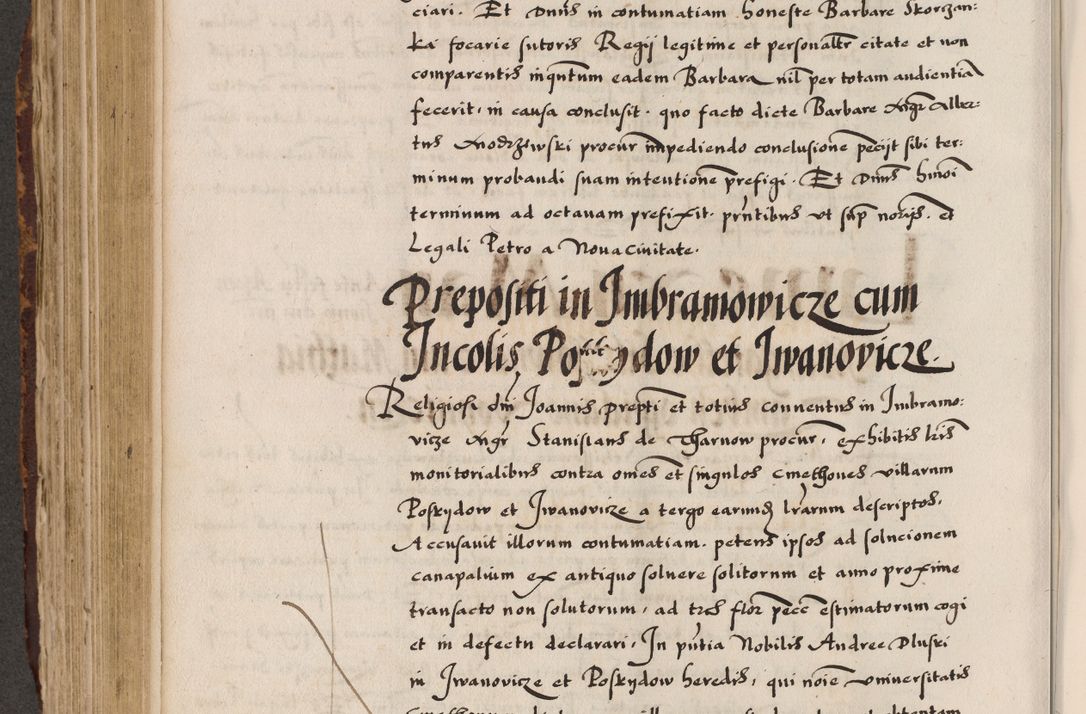 ciari. Et Dnus in contumatiam honeste Barbare Skorczan:
ka focarie sutoris Regij legitime et personaltr citate et non
comparentis inquntum eadem Barbara nil per totam audientia
fecerit, in causa conclusit. quo facto dicte Barbare Mgr Alber:
tus Modrzewski procur impediendo conclusione petijt sibi ter:
minum probandi suam intentione prefigi. Et Dnus hmoi
terminum ad octauam prefixit. pntibus vt sup norijs. et
Legali Petro a Noua ciuitate.
Prepositi in Imbramowicze cum
Incolis Poskydow et Iwanovicze.
Religiosi dni Joannis prepti et totius conuentus in Imbramo:
vicze Mgr Stanislaus de Tharnow procur, exhibitis lris
monitorialibus contra omes et singulos cmethones villarum
Poskydow et Iwanovicze a tergo earumd lrarum descriptos,
Accusauit illorum contumatiam. petens ipsos ad solucionem
canapalium ex antiquo soluere solitorum et anno proxime
transacto non solutorum, ad tres flor pecc estimatorum cogi
et in defectu declarari, In pntia Nobilis Andree Dluski
in Iwanovicze et Poskydow heredis, qui noie vniuersitatis